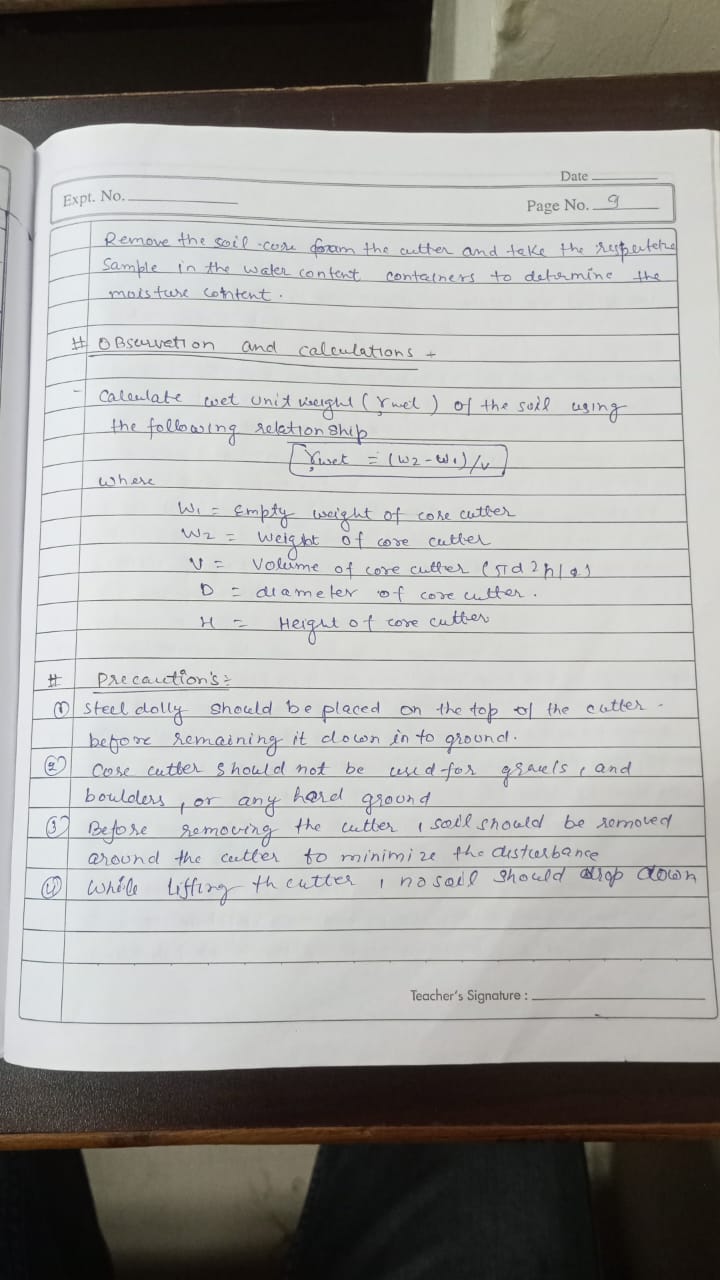 Date
Expt. No.
Page No. 9
Remove the soil-core from the cutter and take the
Sample in the water content containers to determine the
moisture content.
# OBservetion and calculations +
- Calculate wet unit weight (γwet) of the soil using
the following relationship
γwet = (W2-W1)/v
where
W1 = Empty weight of core cutter
W2 = Weight of core cutter
V = Volume of core cutter (πd2h/4)
D = diameter of core cutter.
H = Height of core cutter
# Precaution's:
① Steel dolly should be placed on the top of the cutter -
before remaining it down in to ground.
② Core cutter should not be used for gravels, and
boulders, or any hard ground
③ Before removing the cutter, soil should be removed
around the cutter to minimize the disturbance
④ While lifting th cutter, no soil should drop down
Teacher's Signature :